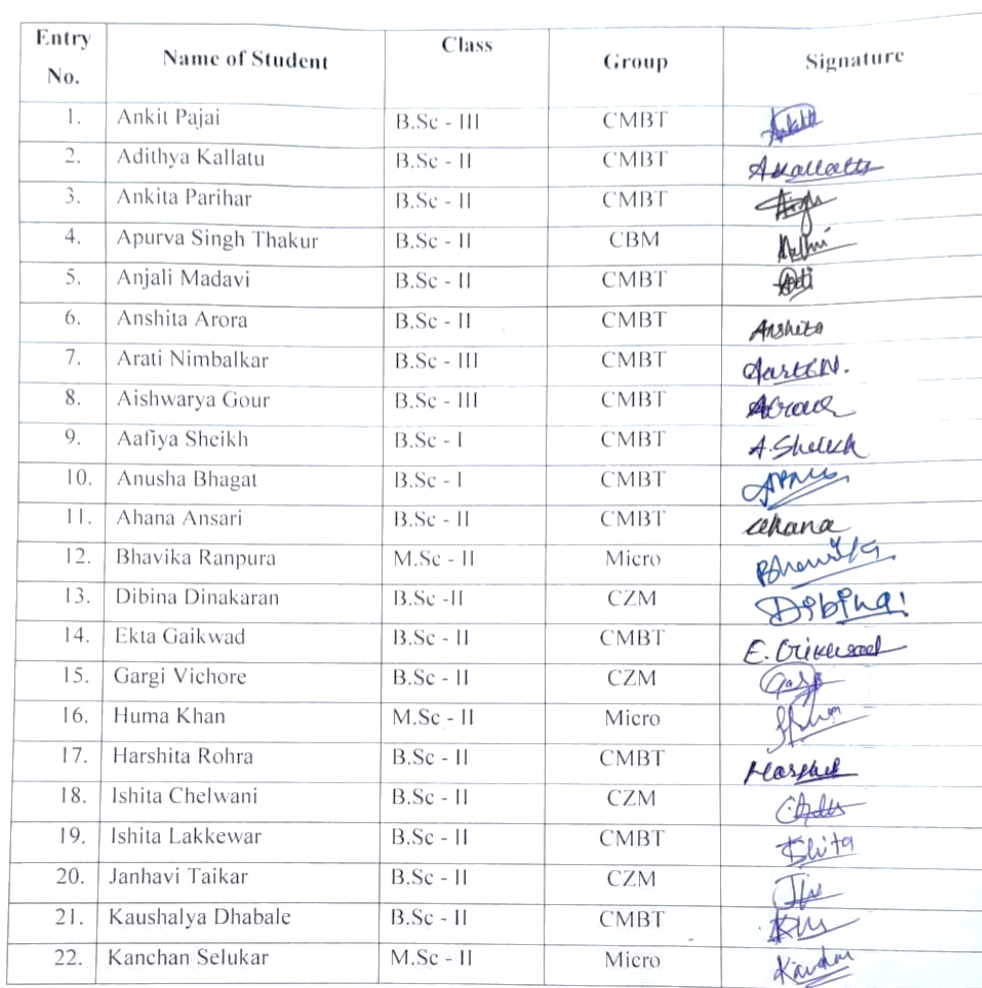 Entry No. Name of Student Class Group Signature
1. Ankit Pajai B.Sc - III CMBT
2. Adithya Kallatu B.Sc - II CMBT
3. Ankita Parihar B.Sc - II CMBT
4. Apurva Singh Thakur B.Sc - II CBM
5. Anjali Madavi B.Sc - II CMBT
6. Anshita Arora B.Sc - II CMBT Anshita
7. Arati Nimbalkar B.Sc - III CMBT
8. Aishwarya Gour B.Sc - III CMBT
9. Aafiya Sheikh B.Sc - I CMBT A.Sheikh
10. Anusha Bhagat B.Sc - I CMBT
11. Ahana Ansari B.Sc - II CMBT Ahana
12. Bhavika Ranpura M.Sc - II Micro
13. Dibina Dinakaran B.Sc -II CZM Dibina
14. Ekta Gaikwad B.Sc - II CMBT
15. Gargi Vichore B.Sc - II CZM
16. Huma Khan M.Sc - II Micro
17. Harshita Rohra B.Sc - II CMBT
18. Ishita Chelwani B.Sc - II CZM
19. Ishita Lakkewar B.Sc - II CMBT Ishita
20. Janhavi Taikar B.Sc - II CZM
21. Kaushalya Dhabale B.Sc - II CMBT
22. Kanchan Selukar M.Sc - II Micro